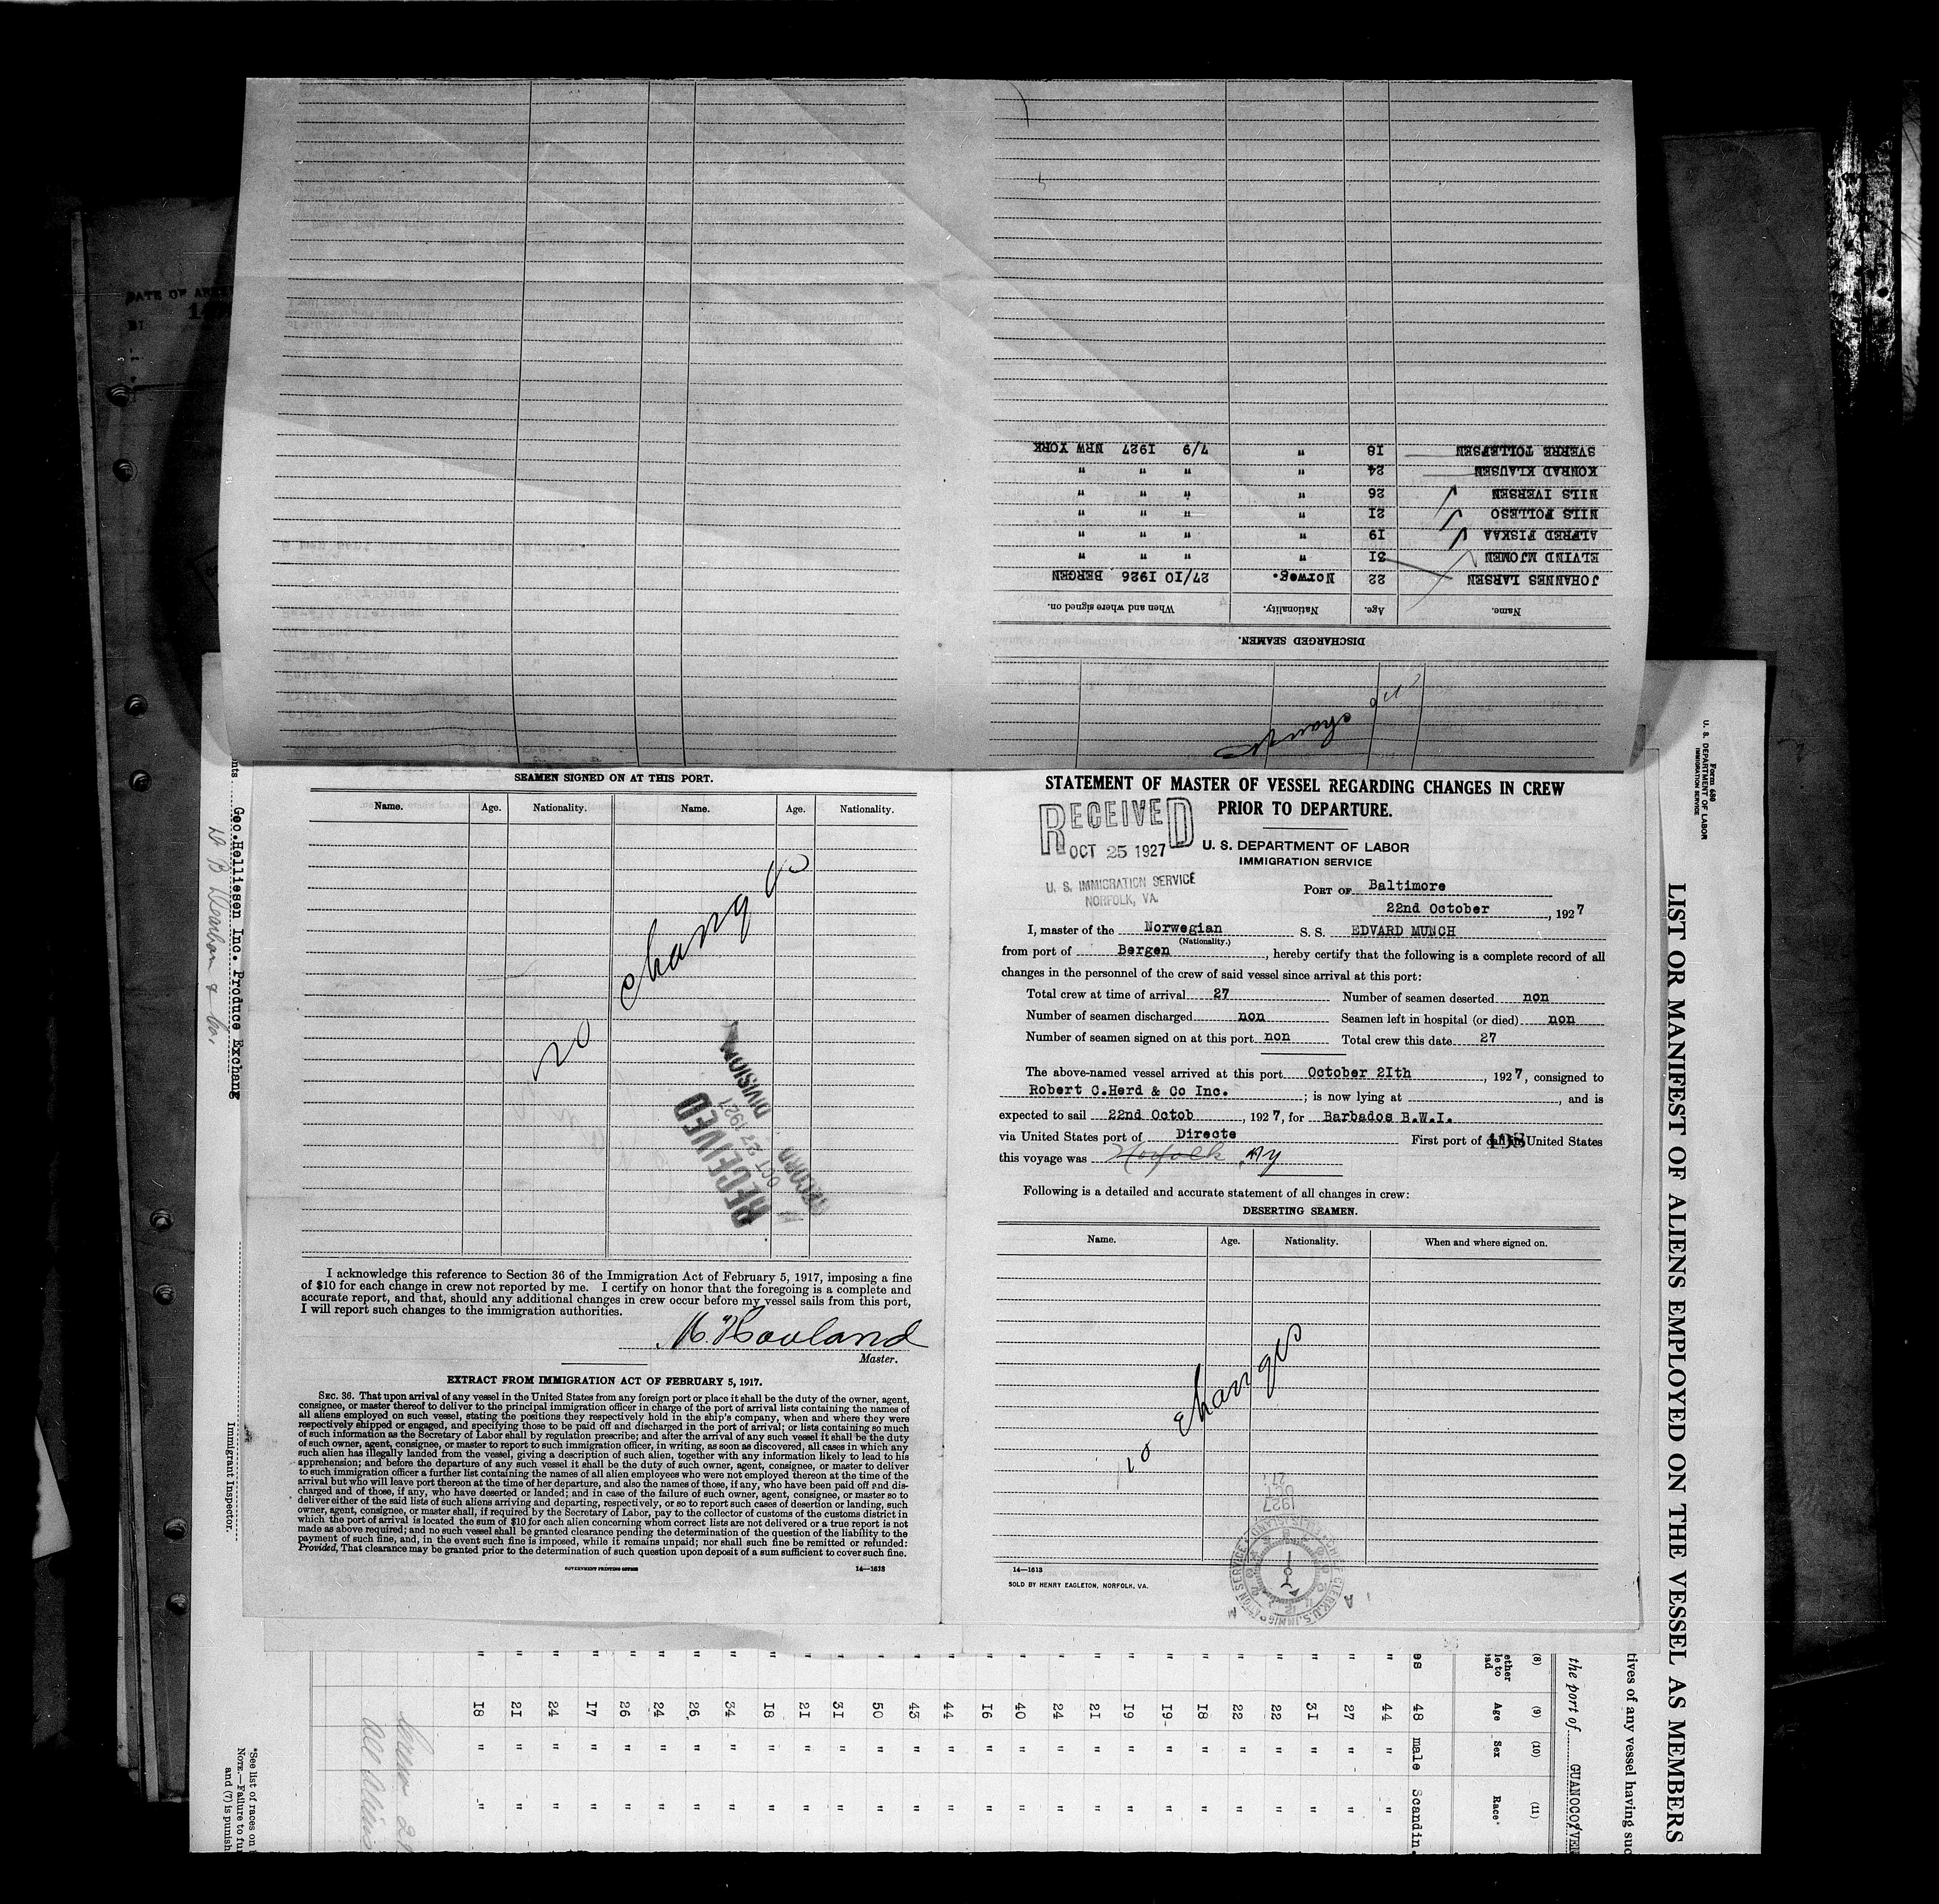 SVERRE TOLLEFSEN 18 " 7/9 1927 NRW YORK
KONRAD KLAUSEN 24 " " " "
NILS IVERSEN 26 " " " "
NILS FOLLESO 21 " " " "
ALFRED FISKAA 19 " " " "
ELVIND MJOMEN 21 " " " "
JOHANNES LARSEN 22 Norweg. 27/10 1926 BERGEN
Name. Age. Nationality. When and where signed on.
DISCHARGED SEAMEN.
no change
SEAMEN SIGNED ON AT THIS PORT.
Name. Age. Nationality. Name. Age. Nationality.
no changes
RECEIVED
OCT 22 1927
RECORD DIVISION
I acknowledge this reference to Section 36 of the Immigration Act of February 5, 1917, imposing a fine
of $10 for each change in crew not reported by me. I certify on honor that the foregoing is a complete and
accurate report, and that, should any additional changes in crew occur before my vessel sails from this port,
I will report such changes to the immigration authorities.
Master.
EXTRACT FROM IMMIGRATION ACT OF FEBRUARY 5, 1917.
SEC. 36. That upon arrival of any vessel in the United States from any foreign port or place it shall be the duty of the owner, agent,
consignee, or master thereof to deliver to the principal immigration officer in charge of the port of arrival lists containing the names of
all aliens employed on such vessel, stating the positions they respectively hold in the ship's company, when and where they were
respectively shipped or engaged, and specifying those to be paid off and discharged in the port of arrival; or lists containing so much
of such information as the Secretary of Labor shall by regulation prescribe; and after the arrival of any such vessel it shall be the duty
of such owner, agent, consignee, or master to report to such immigration officer, in writing, as soon as discovered, all cases in which any
such alien has illegally landed from the vessel, giving a description of such alien, together with any information likely to lead to his
apprehension; and before the departure of any such vessel it shall be the duty of such owner, agent, consignee, or master to deliver
to such immigration officer a further list containing the names of all alien employees who were not employed thereon at the time of the
arrival but who will leave port thereon at the time of her departure, and also the names of those, if any, who have been paid off and dis-
charged and of those, if any, who have deserted or landed; and in case of the failure of such owner, agent, consignee, or master so to
deliver either of the said lists of such aliens arriving and departing, respectively, or so to report such cases of desertion or landing, such
owner, agent, consignee, or master shall, if required by the Secretary of Labor, pay to the collector of customs of the customs district in
which the port of arrival is located the sum of $10 for each alien concerning whom correct lists are not delivered or a true report is not
made as above required; and no such vessel shall be granted clearance pending the determination of the question of the liability to the
payment of such fine, and, in the event such fine is imposed, while it remains unpaid; nor shall such fine be remitted or refunded:
Provided, That clearance may be granted prior to the determination of such question upon deposit of a sum sufficient to cover such fine.
GOVERNMENT PRINTING OFFICE 14—1613
STATEMENT OF MASTER OF VESSEL REGARDING CHANGES IN CREW
PRIOR TO DEPARTURE.
RECEIVED
OCT 25 1927
U. S. IMMIGRATION SERVICE
NORFOLK, VA.
U. S. DEPARTMENT OF LABOR
IMMIGRATION SERVICE
PORT OF Baltimore
22nd October, 1927
I, master of the Norwegian S. S. EDVARD MUNCH
(Nationality.)
from port of Bergen, hereby certify that the following is a complete record of all
changes in the personnel of the crew of said vessel since arrival at this port:
Total crew at time of arrival 27 Number of seamen deserted non
Number of seamen discharged non Seamen left in hospital (or died) non
Number of seamen signed on at this port non Total crew this date 27
The above-named vessel arrived at this port October 2Ith, 1927, consigned to
Robert C.Herd & Co Inc.; is now lying at , and is
expected to sail 22nd Octob, 1927, for Barbados B.W.I.
via United States port of Directe First port of call in United States
this voyage was Norfolk NY
Following is a detailed and accurate statement of all changes in crew:
DESERTING SEAMEN.
Name. Age. Nationality. When and where signed on.
no changes
14—1613
SOLD BY HENRY EAGLETON, NORFOLK, VA.
Form 680
U. S. DEPARTMENT OF LABOR
IMMIGRATION SERVICE
LIST OR MANIFEST OF ALIENS EMPLOYED ON THE VESSEL AS MEMBERS
tives of any vessel having suc
the port of GUANOCO/VEN
(8) (9) (10) (11)
Age Sex Race*
es 48 male Scandin.
" 44 " "
" 27 " "
" 31 " "
" 22 " "
" 22 " "
" 18 " "
" 19 " "
" 19 " "
" 21 " "
" 24 " "
" 40 " "
" 16 " "
" 44 " "
" 43 " "
" 50 " "
" 31 " "
" 21 " "
" 18 " "
" 34 " "
" 26 " "
" 24 " "
" 26 " "
" 17 " "
" 24 " "
" 21 " "
" 18 " "
*See list of races on
NOTE.—Failure to fu
and (7) is punish
Geo.Helliesen Inc. Produce Exchang
Immigrant Inspector.
DATE OF ARR